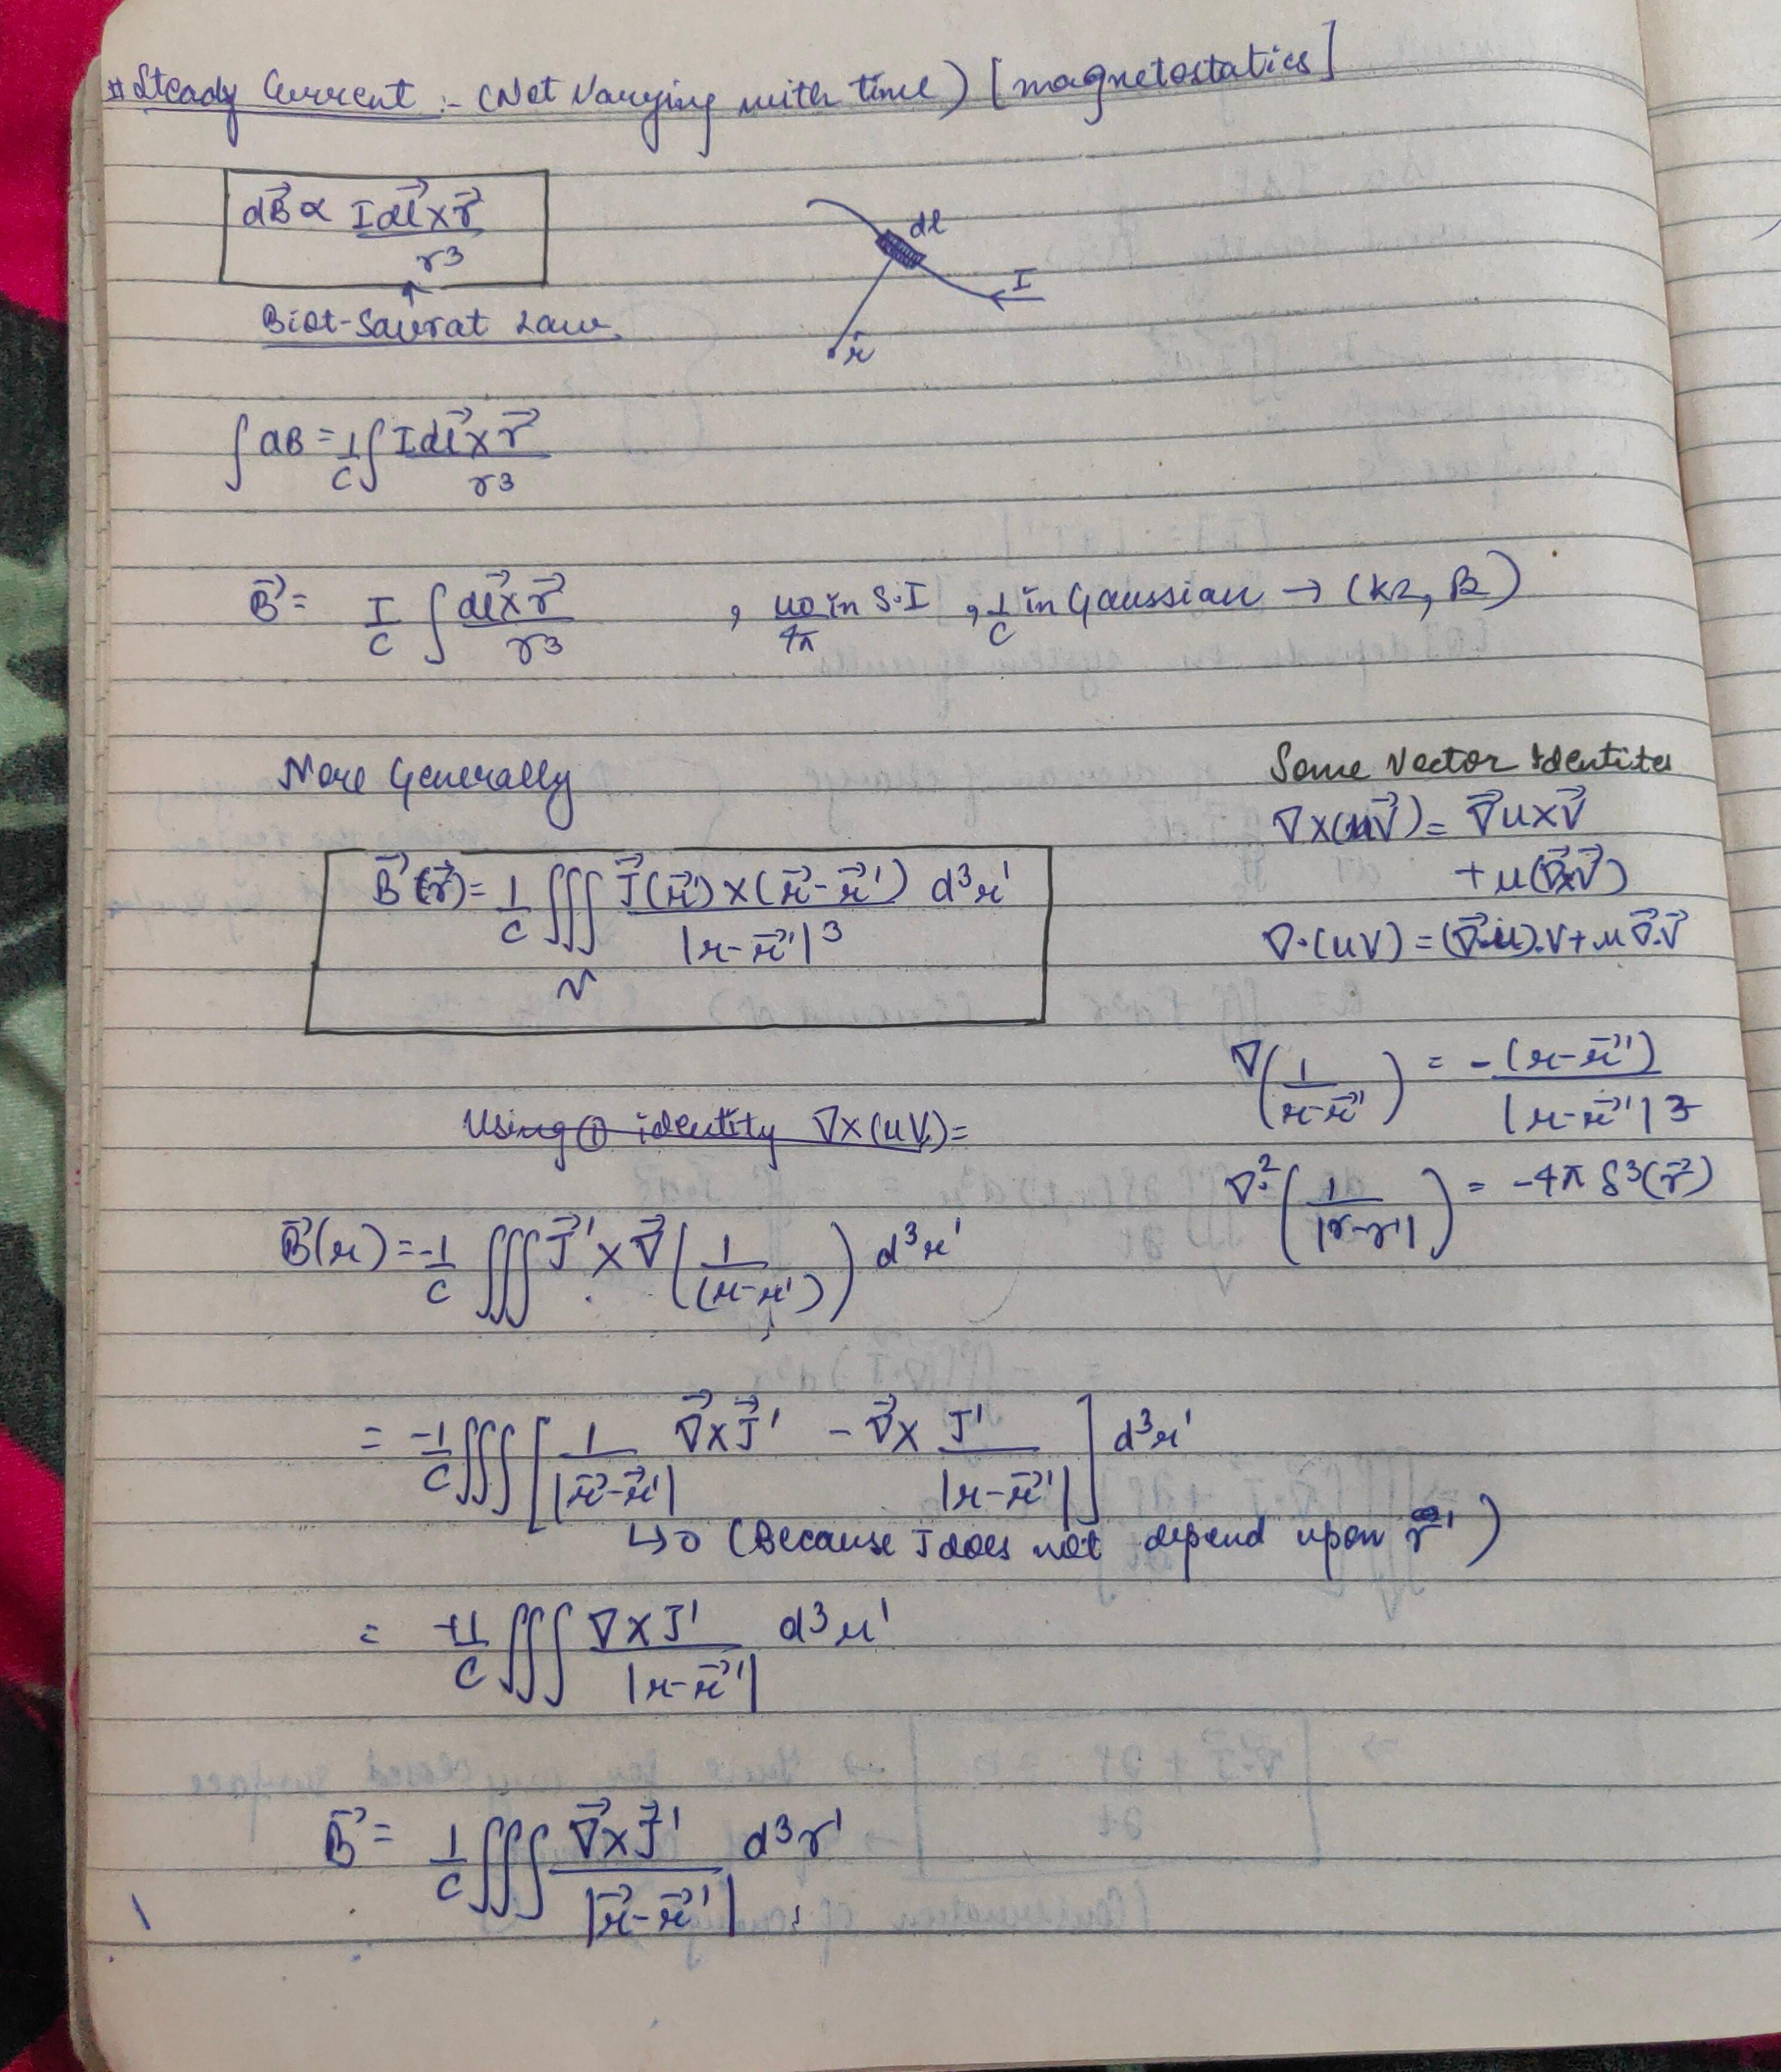 # Steady Current :- (Not Varying with time) [magnetostatics]
dB⃗ ∝ I dl⃗ × r⃗ / r3
dl
I
r
Biot-Saurat Law
∫ dB = 1/C ∫ I dl⃗ × r⃗ / r3
B⃗ = I/C ∫ dl⃗ × r⃗ / r3 , μ0/4π in S.I , 1/C in Gaussian → (k2, B)
More Generally
B⃗(r⃗) = 1/C ∭ J⃗(r⃗') × (r⃗ - r⃗') d³r' / |r - r⃗'|³
V
Some Vector Identites
∇×(uV⃗) = ∇⃗u × V⃗
+ u(∇⃗×V⃗)
∇·(uV) = (∇⃗·u)·V + u ∇⃗·V⃗
∇(1 / r - r⃗') = -(r - r⃗') / |r - r⃗'|3
∇² (1 / |r - r'|) = -4π δ³(r⃗)
Using ① identity ∇×(uV) =
B⃗(r) = -1/C ∭ J⃗' × ∇⃗ (1 / (r - r')) d³r'
= -1/C ∭ [ 1/|r⃗ - r⃗'| ∇⃗×J⃗' - ∇⃗× J'/|r - r⃗'| ] d³r'
↳ 0 (Because J does not depend upon r⃗')
= +1/C ∭ ∇×J' / |r - r⃗'| d³r'
B⃗ = 1/C ∭ ∇⃗×J⃗' / |r⃗ - r⃗'| d³r'